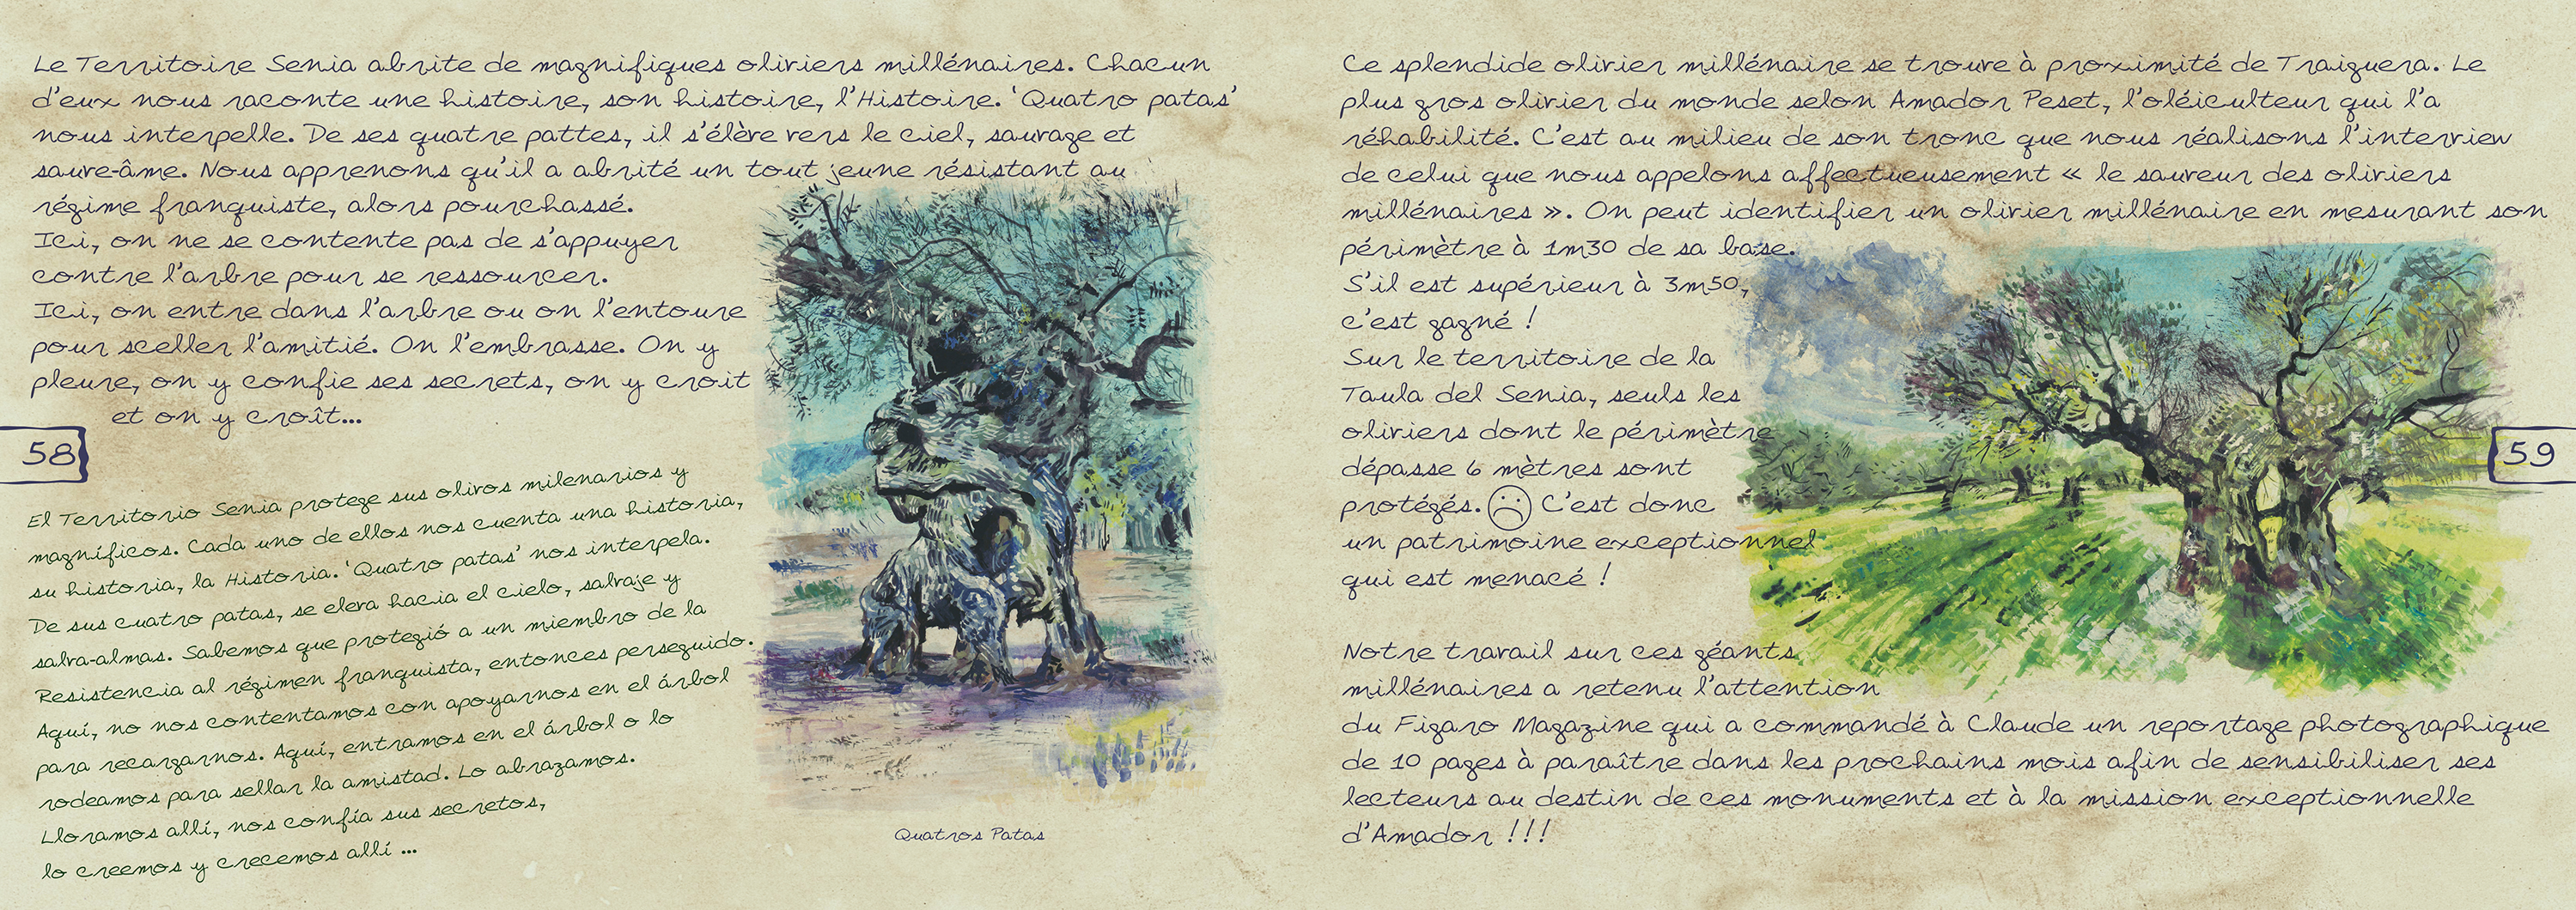 Le Territoire Senia abrite de magnifiques oliviers millénaires. Chacun
d'eux nous raconte une histoire, son histoire, l'Histoire. 'Quatro patas'
nous interpelle. De ses quatre pattes, il s'élève vers le ciel, sauvage et
sauve-âme. Nous apprenons qu'il a abrité un tout jeune résistant au
régime franquiste, alors pourchassé.
Ici, on ne se contente pas de s'appuyer
contre l'arbre pour se ressourcer.
Ici, on entre dans l'arbre ou on l'entoure
pour sceller l'amitié. On l'embrasse. On y
pleure, on y confie ses secrets, on y croit
et on y croît...
58
El Territorio Senia protege sus olivos milenarios y
magníficos. Cada uno de ellos nos cuenta una historia,
su historia, la Historia. 'Quatro patas' nos interpela.
De sus cuatro patas, se eleva hacia el cielo, salvaje y
salva-almas. Sabemos que protegió a un miembro de la
Resistencia al régimen franquista, entonces perseguido.
Aquí, no nos contentamos con apoyarnos en el árbol
para recargarnos. Aquí, entramos en el árbol o lo
rodeamos para sellar la amistad. Lo abrazamos.
Lloramos allí, nos confía sus secretos,
lo creemos y crecemos allí ...
Quatros Patas
Ce splendide olivier millénaire se trouve à proximité de Traiguera. Le
plus gros olivier du monde selon Amador Peset, l'oléiculteur qui l'a
réhabilité. C'est au milieu de son tronc que nous réalisons l'interview
de celui que nous appelons affectueusement « le sauveur des oliviers
millénaires ». On peut identifier un olivier millénaire en mesurant son
périmètre à 1m30 de sa base.
S'il est supérieur à 3m50,
c'est gagné !
Sur le territoire de la
Taula del Senia, seuls les
oliviers dont le périmètre
dépasse 6 mètres sont
protégés. ☹ C'est donc
un patrimoine exceptionnel
qui est menacé !
59
Notre travail sur ces géants
millénaires a retenu l'attention
du Figaro Magazine qui a commandé à Claude un reportage photographique
de 10 pages à paraître dans les prochains mois afin de sensibiliser ses
lecteurs au destin de ces monuments et à la mission exceptionnelle
d'Amador !!!